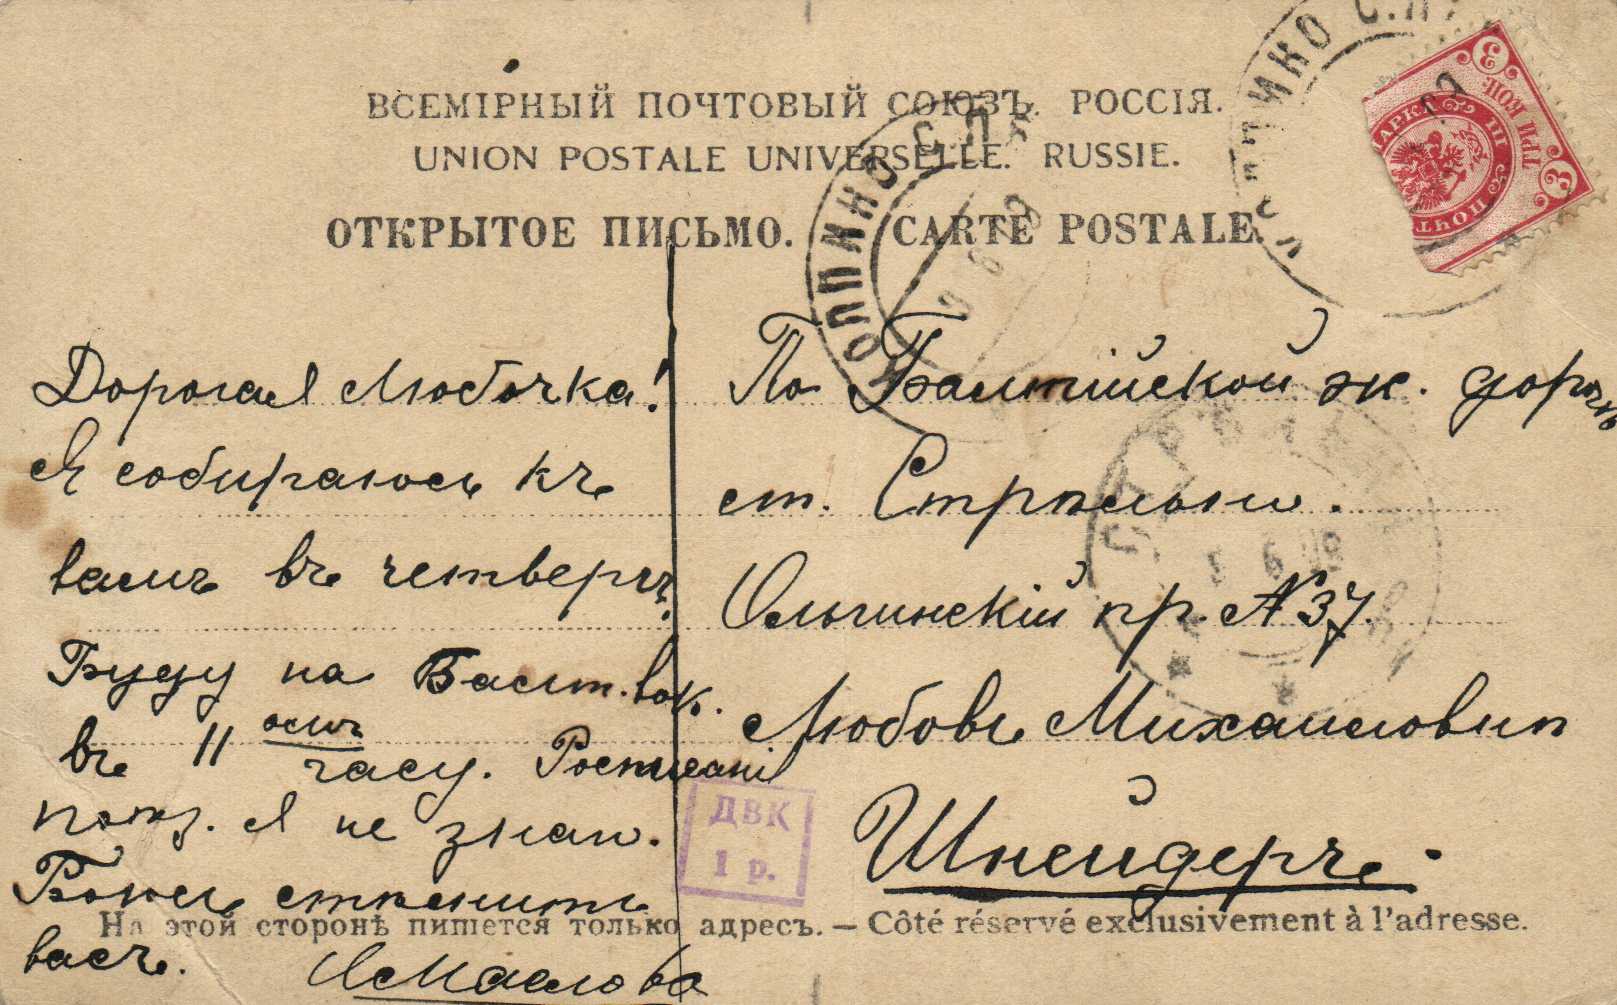 ВСЕМІРНЫЙ ПОЧТОВЫЙ СОЮЗЪ. РОССІЯ.
UNION POSTALE UNIVERSELLE. RUSSIE.
ОТКРЫТОЕ ПИСЬМО. CARTE POSTALE.
КОЛПИНО С.П.
ТРИ КОП.
3
3
Дорогая Любочка!
Я собираюсь къ
вамъ въ четвергъ.
Буду на Балт. вок.
въ 11 часу.
Я не знаю.
Боюсь стѣснить
васъ.
Маслова
По Балтійской ж. дорогѣ
ст. Стрѣльны.
Ольгинскій пр. № 37.
Любовь Михайловнѣ
Шнейдеръ.
ДВК
1 р.
На этой сторонѣ пишется только адресъ. — Côté réservé exclusivement à l'adresse.